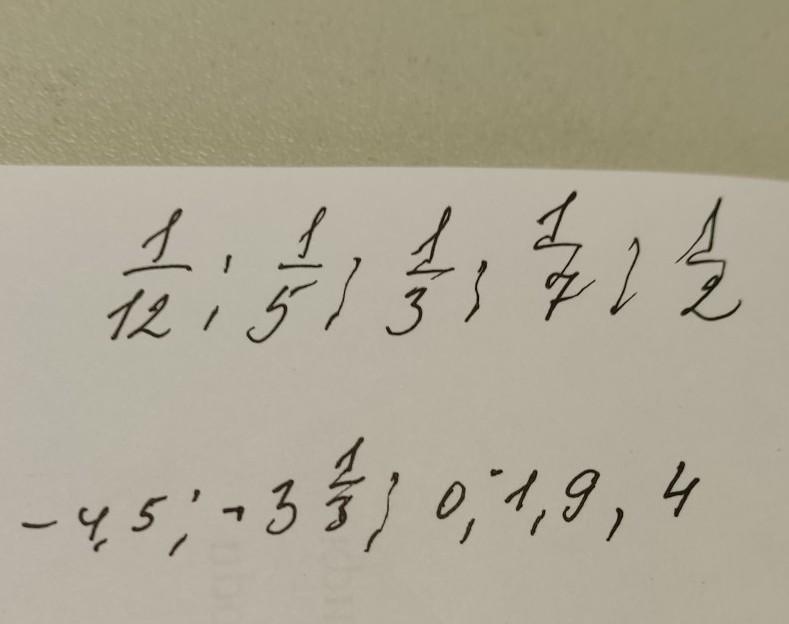 1/12; 1/5; 1/3; 1/7; 1/2
-4,5; -3 1/3; 0; 1,9, 4